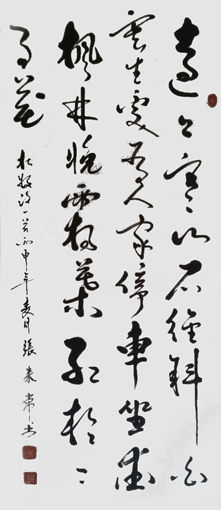 遠上寒山石徑斜白
雲生處有人家停車坐愛
楓林晚霜葉紅於二
月花
杜牧詩一首丙申年夏月張來常书